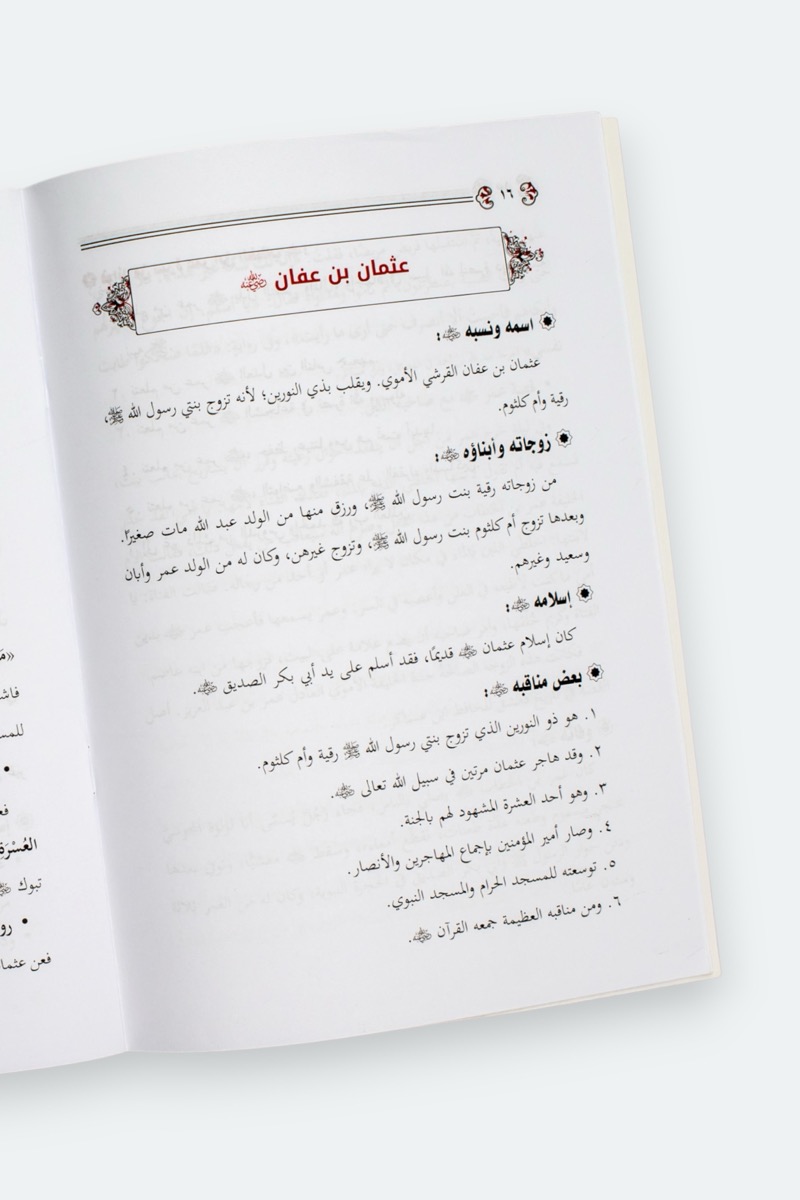 ١٦
عثمان بن عفان ﵁
اسمه ونسبه ﵁:
عثمان بن عفان القرشي الأموي. ويقلب بذي النورين؛ لأنه تزوج بنتي رسول الله ﷺ،
رقية وأم كلثوم.
زوجاته وأبناؤه ﵁:
من زوجاته رقية بنت رسول الله ﷺ، ورزق منها من الولد عبد الله مات صغيرًا.
وبعدها تزوج أم كلثوم بنت رسول الله ﷺ، وتزوج غيرهن، وكان له من الولد عمر وأبان
وسعيد وغيرهم.
إسلامه ﵁:
كان إسلام عثمان ﵁ قديمًا، فقد أسلم على يد أبي بكر الصديق ﵁.
بعض مناقبه ﵁:
١. هو ذو النورين الذي تزوج بنتي رسول الله ﷺ رقية وأم كلثوم.
٢. وقد هاجر عثمان مرتين في سبيل الله تعالى ﵁.
٣. وهو أحد العشرة المشهود لهم بالجنة.
٤. وصار أمير المؤمنين بإجماع المهاجرين والأنصار.
٥. توسعته للمسجد الحرام والمسجد النبوي.
٦. ومن مناقبه العظيمة جمعه القرآن ﵁.
العُسْرَة
تبوك
فعن عثما